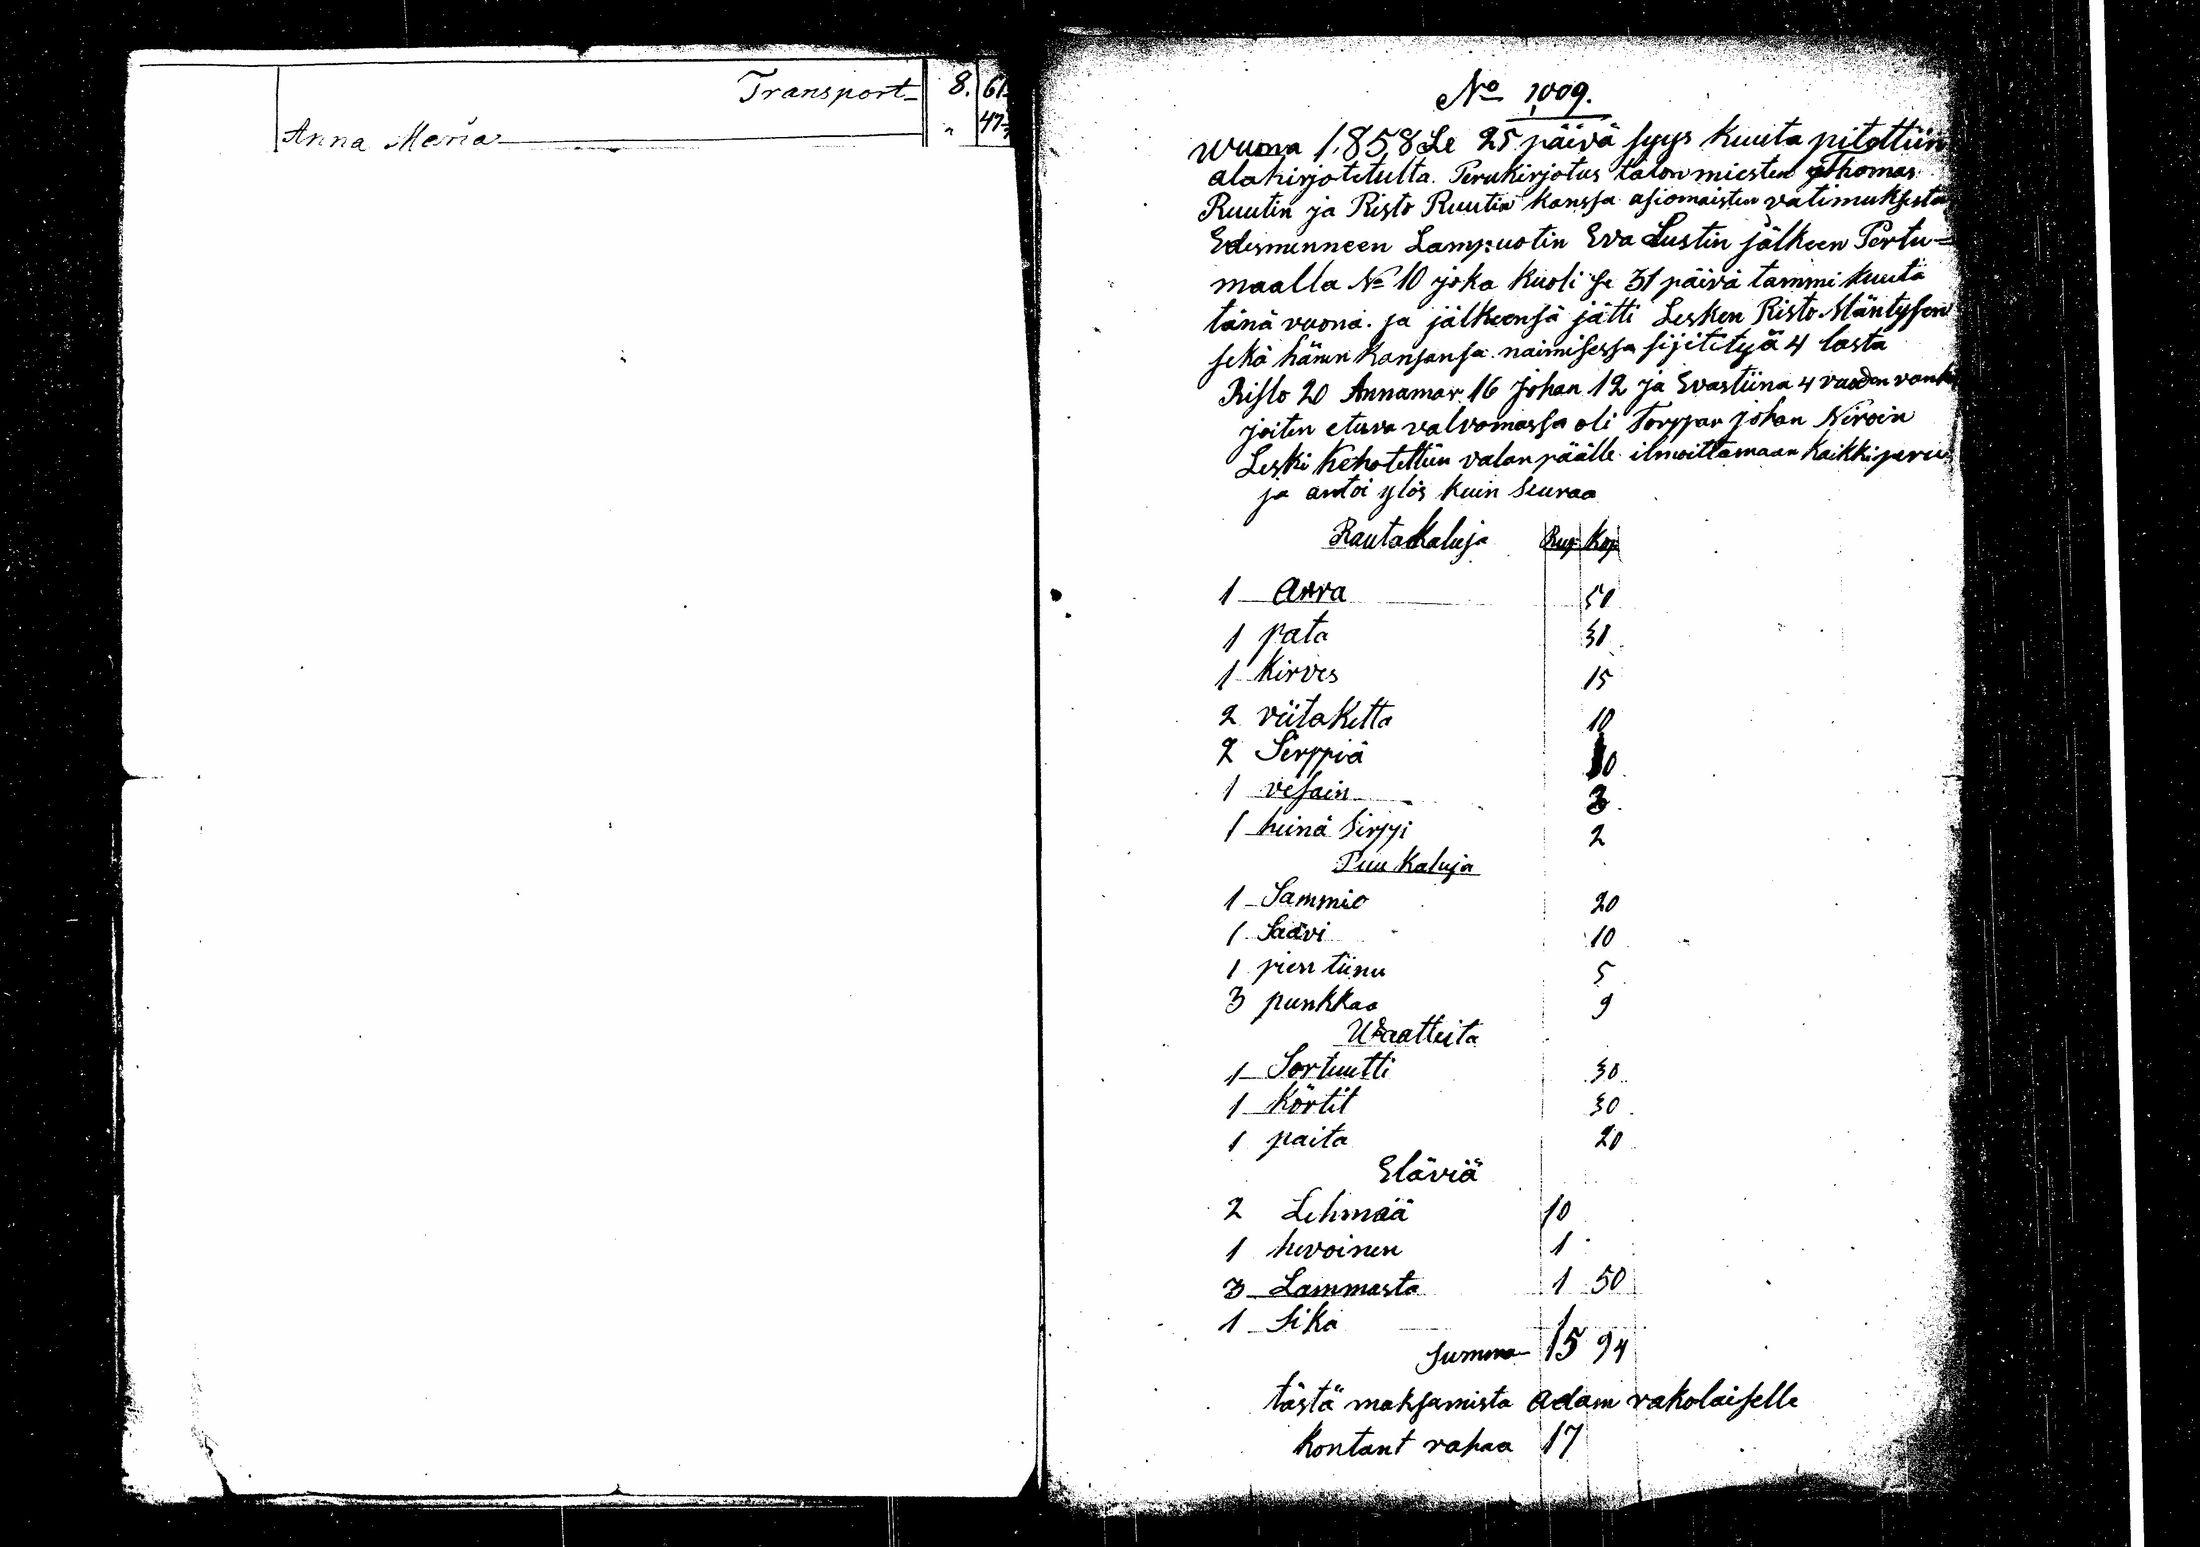 Transport 8. 61
Anna Maria " 47
No 1009.
wuona 1858 Se 25 päivä syys kuuta pitettiin
alakirjotetulta Perukirjotus talon miesten Thomas
Ruutin ja Risto Ruutin kanssa asiomaisten vatimuksesta
Edesmenneen Lampuotin Eva Lustin jälkeen Pertu=
maalla No 10 joka kuoli se 31 päivä tammi kuuta
tänä vuona. ja jälkeensä jätti Lesken Risto Mäntysen
sekä hänen kansansa naimisessa sijitetyä 4 lasta
Risto 20 Annamar 16 Johan 12 ja Evastiina 4 vuoden
joiten etuva valvomassa oli Torppar johan Niroin
Leski kehotettiin valan päälle ilmoittamaan kaikki
ja antoi ylös kuin Seuraa
Rauta kaluja Rup Kop
1 Avra 50
1 pata 30
1 kirves 15
2 viitaketta 10
2 Serppiä 10
1 vesain 3
1 heinä Sirppi 2
Puu kaluja
1 Sammio 20
1 Saavi 10
1 pien tiinu 5
3 punkkaa 9
Waatteita
1 Sortuutti 30
1 körtit 30
1 paita 20
Eläviä
2 Lehmää 10
1 hevoinen 1
3 Lammasta 1 50
1 Sika 1
Summa 15 94
tästä maksamista Adam rakolaiselle
kontant rahaa 17